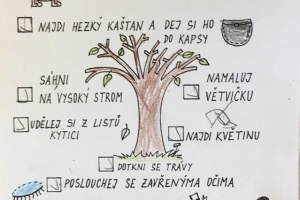 NAJDI HEZKÝ KAŠTAN A DEJ SI HO
DO KAPSY
SÁHNI
NA VYSOKÝ STROM
NAMALUJ
VĚTVIČKU
UDĚLEJ SI Z LISTŮ
KYTICI
NAJDI KVĚTINU
DOTKNI SE TRÁVY
POSLOUCHEJ SE ZAVŘENÝMA OČIMA